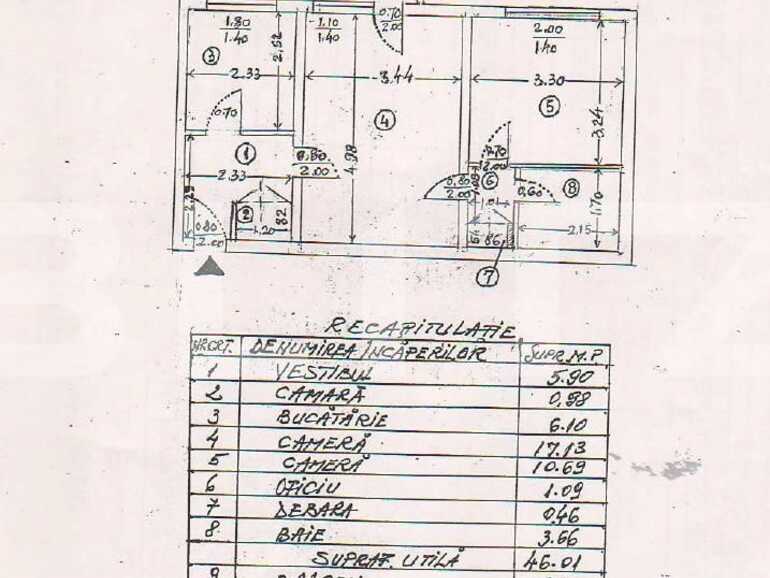 1.80 1.10 0.70 2.00
1.40 1.40 2.00 1.40
3 2.52
2.33 3.44 3.30
0.70 4 5
4.98 3.24
1 0.80 0.70
2.00 2.00
2.33 0.80 6 8
2.00 0.60 1.70
2 1.82
0.80 1.20 86 2.15
2.00
7
RECAPITULAȚIE
NR CRT. DENUMIREA ÎNCĂPERILOR SUPR.M.P
1 VESTIBUL 5.90
2 CAMARĂ 0.98
3 BUCĂTĂRIE 6.10
4 CAMERĂ 17.13
5 CAMERĂ 10.69
6 OFICIU 1.09
7 DEBARA 0.46
8 BAIE 3.66
SUPRAF. UTILĂ 46.01
9